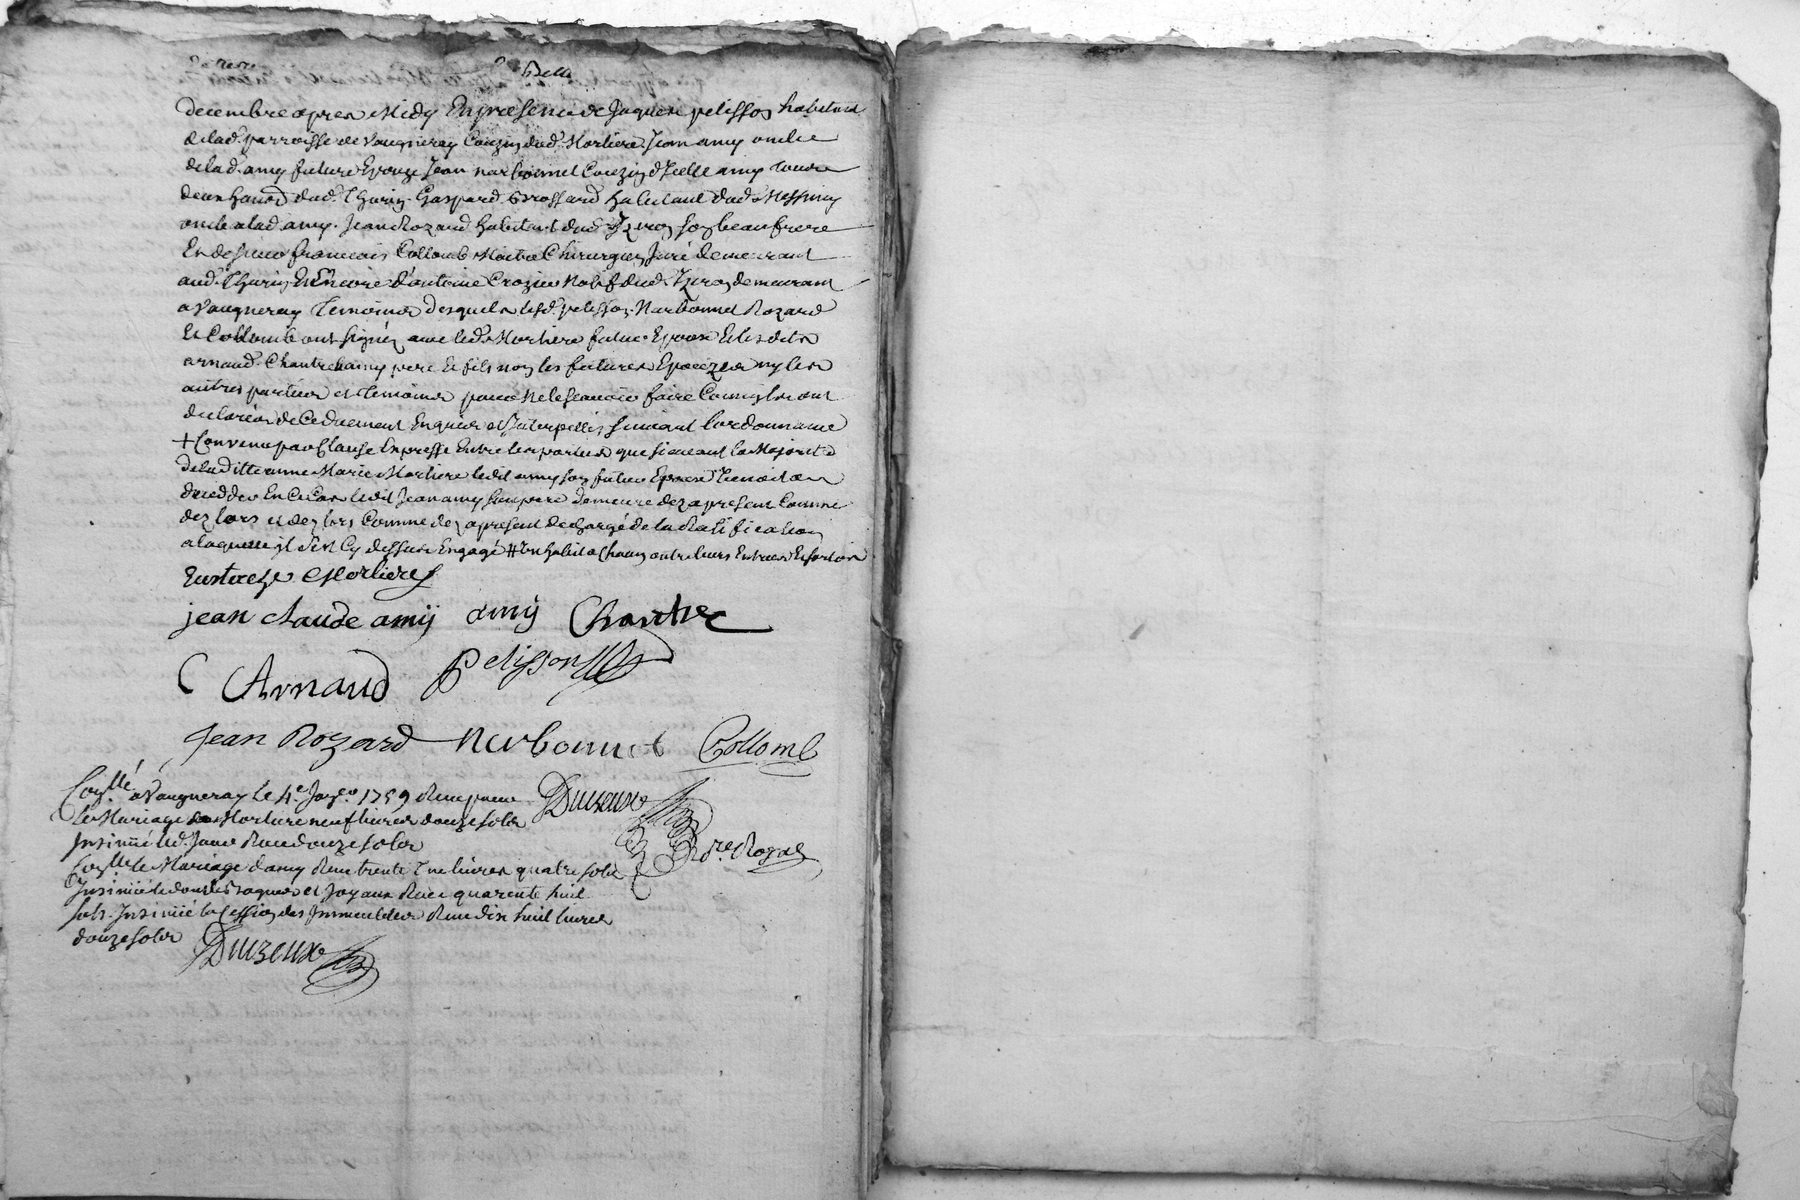 decembre apres Midy En presence de Jaques pelisson habitant
de lad. parroisse de Vaugneray Couzin dud. Morliere Jean amy oncle
de lad. amy future Epouze Jean narbonnet Couzin d'Icelle amy
dud. Thurin Gaspard Grossard habitant dud. Messimy
oncle a lad. amy. Jean Rozard habitant dud. Yzeron son beau frere
Et de sieur francois Collomb Maitre Chirurgien Juré demeurant
aud. Thurin Et Encore d'antoine Crozier Natif dud. Yzeron demeurant
a Vaugneray temoins desquels lesd. pelisson Narbonnet Rozard
Et Collomb ont signéz avec led. Morliere futur Epoux Et lesdits
arnaud Chantre amy pere Et fils non les futures Epouzes ny les
autres parties et temoins pour ne le scavoir faire Comm'ils ont
declarés de Ce duement Enquis et Interpellés suivant l'ordonnance
+ Convenu par Clause Expresse Entre les parties que sieavant la Majorité
de laditte anne Marie Morliere ledit amy son futur Epoux
dreedder En Ce Cas ledit Jean amy son pere demeure dez apresent Comme
dez lors et dez lors Comme dez apresent dechargé de la Ratification
a laquelle il s'est Cy dessus Engagé # Un habit a Chacun outre leurs Entrées Et sorties
Eustache Morlieres
jean claude amÿ amÿ Chantre
C Arnaud Pelisson
Jean Rozard Narbonnet Collomb
Con.llé a Vaugneray le 4e Janv.er 1759 Reçu pour Duizeux
le Mariage Morliere neuf livres douze sols
Insinué led. Jour Reçu douze sols Rd.re Royal
Con.llé le Mariage d'amy Reçu trente une livres quatre sols
Insinué le don des bagues et Joyaux Reçu quarente huit
sols. Insinué la Cession des Immeubles Reçu dix huit livres
douze sols Duizeux